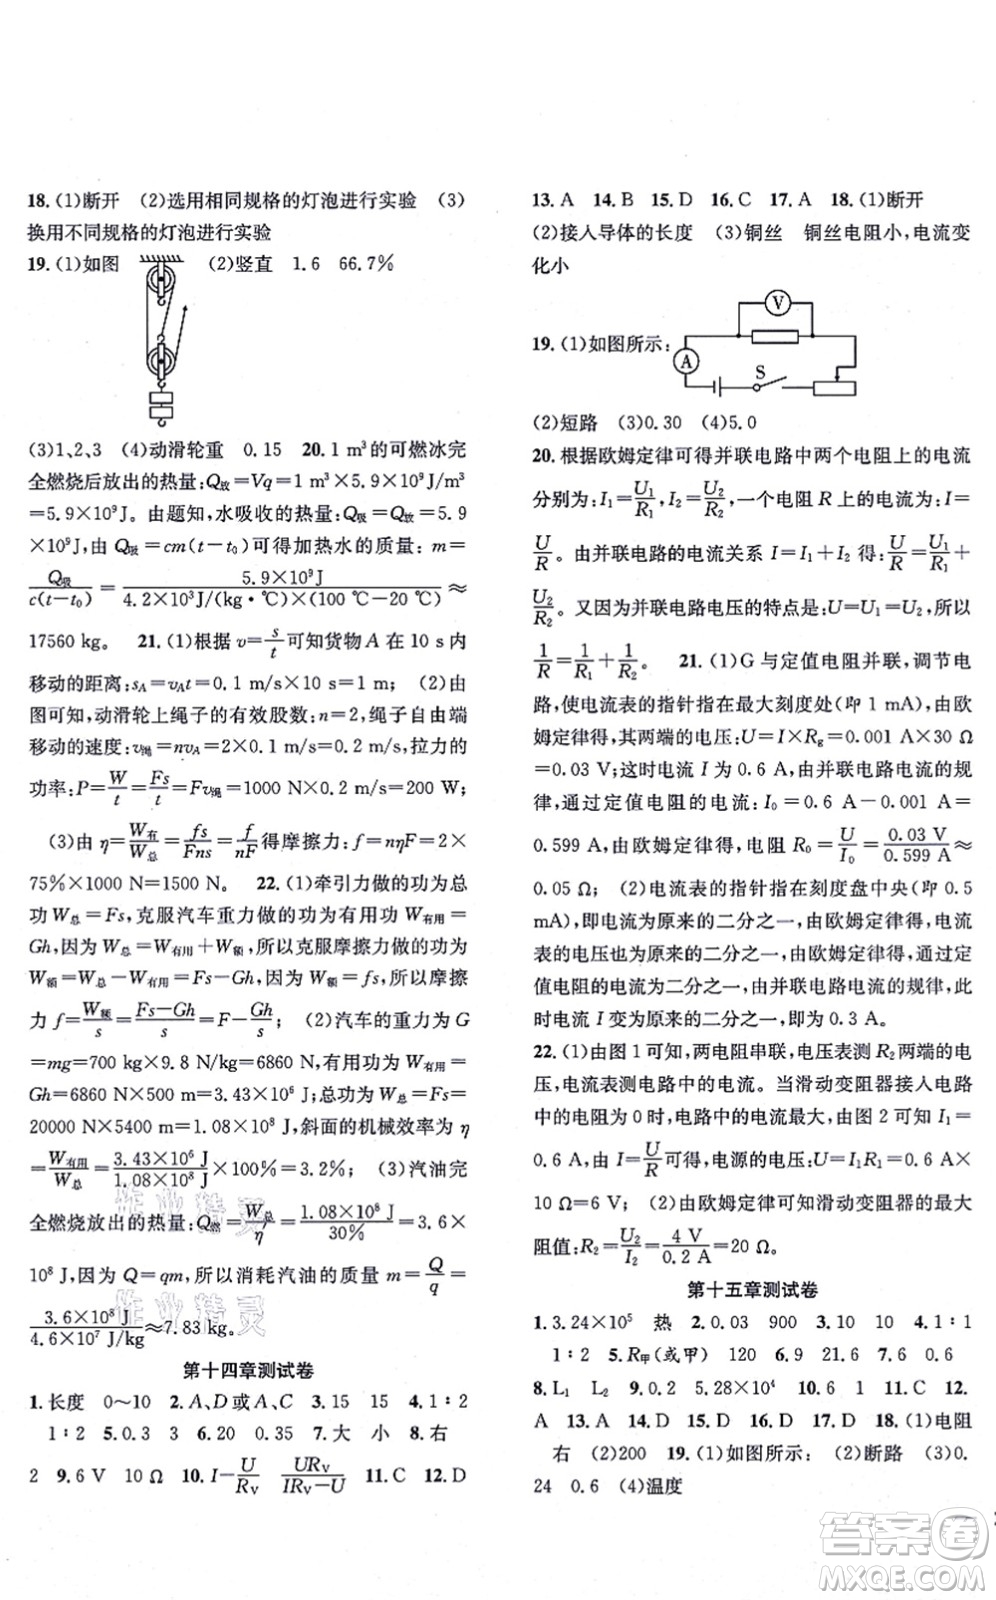 18.(1)断开 (2)选用相同规格的灯泡进行实验 (3)
换用不同规格的灯泡进行实验
19.(1)如图 (2)竖直 1.6 66.7%
(3)1、2、3 (4)动滑轮重 0.15 20.1 m³的可燃冰完
全燃烧后放出的热量:Q放=Vq=1 m³×5.9×10⁹J/m³
=5.9×10⁹J。由题知,水吸收的热量:Q吸=Q放=5.9
×10⁹J,由 Q吸=cm(t-t₀)可得加热水的质量: m=
Q吸/c(t-t₀)=5.9×10⁹J/4.2×10³J/(kg·℃)×(100 ℃-20 ℃)≈
17560 kg。 21.(1)根据 v=s/t可知货物 A 在 10 s 内
移动的距离:sA=vAt=0.1 m/s×10 s=1 m; (2)由
图可知,动滑轮上绳子的有效股数:n=2,绳子自由端
移动的速度:v绳=nvA=2×0.1 m/s=0.2 m/s,拉力的
功率:P=W/t=Fs/t=Fv绳=1000 N×0.2 m/s=200 W;
(3)由 η=W有/W总=fs/Fns=f/nF得摩擦力:f=nηF=2×
75%×1000 N=1500 N。 22.(1)牵引力做的功为总
功 W总=Fs,克服汽车重力做的功为有用功 W有用=
Gh,因为 W总=W有用+W额,所以克服摩擦力做的功为
W额=W总-W有用=Fs-Gh,因为 W额=fs,所以摩擦
力 f=W额/s=Fs-Gh/s=F-Gh/s; (2)汽车的重力为 G
=mg=700 kg×9.8 N/kg=6860 N,有用功为 W有用=
Gh=6860 N×500 m=3.43×10⁶ J;总功为 W总=Fs=
20000 N×5400 m=1.08×10⁸ J,斜面的机械效率为 η
=W有用/W总=3.43×10⁶ J/1.08×10⁸ J×100%=3.2%; (3)汽油完
全燃烧放出的热量:Q燃=W总/η=1.08×10⁸ J/30%=3.6×
10⁸ J,因为 Q=qm,所以消耗汽油的质量 m=Q/q=
3.6×10⁸ J/4.6×10⁷ J/kg≈7.83 kg。
第十四章测试卷
1.长度 0～10 2.A、D或A、C 3.15 15 4.1∶2
1∶2 5.0.3 3 6.0.2 0.35 7.大 小 8.右
2 9.6 V 10 Ω 10.I-U/RV URV/IRV-U 11.C 12.D
13.A 14.B 15.D 16.C 17.A 18.(1)断开
(2)接入导体的长度 (3)铜丝 铜丝电阻小,电流变
化小
V
19.(1)如图所示:
A
S
(2)短路 (3)0.30 (4)5.0
20.根据欧姆定律可得并联电路中两个电阻上的电流
分别为:I₁=U₁/R₁,I₂=U₂/R₂,一个电阻 R 上的电流为:I=
U/R。由并联电路的电流关系 I=I₁+I₂ 得:U/R=U₁/R₁+
U₂/R₂。又因为并联电路电压的特点是:U=U₁=U₂,所以
1/R=1/R₁+1/R₂。 21.(1)G 与定值电阻并联,调节电
路,使电流表的指针指在最大刻度处(即 1 mA),由欧
姆定律得,其两端的电压:U=I×Rg=0.001 A×30 Ω
=0.03 V;这时电流 I 为 0.6 A,由并联电路电流的规
律,通过定值电阻的电流:I₀=0.6 A-0.001 A=
0.599 A;由欧姆定律得,电阻 R₀=U/I₀=0.03 V/0.599 A≈
0.05 Ω; (2)电流表的指针指在刻度盘中央(即 0.5
mA),即电流为原来的二分之一,由欧姆定律得,电流
表的电压也为原来的二分之一,由欧姆定律得,通过定
值电阻的电流为二分之一,由并联电路电流的规律,此
时电流 I 变为原来的二分之一,即为 0.3 A。
22.(1)由图 1 可知,两电阻串联,电压表测 R₂两端的电
压,电流表测电路中的电流。当滑动变阻器接入电路
中的电阻为 0 时,电路中的电流最大,由图 2 可知 I₁=
0.6 A,由 I=U/R可得,电源的电压:U=I₁R₁=0.6 A×
10 Ω=6 V; (2)由欧姆定律可知滑动变阻器的最大
阻值:R₂=U₂/I₂=4 V/0.2 A=20 Ω。
第十五章测试卷
1.3.24×10⁵ 热 2.0.03 900 3.10 10 4.1∶1
1∶2 5.R甲(或甲) 120 6.9 21.6 7.6 0.6
8.L₁ L₂ 9.0.2 5.28×10⁴ 10.A 11.C 12.
A 13.A 14.B 15.D 16.D 17.D 18.(1)电阻
右 (2)200 19.(1)如图所示: (2)断路 (3)0.
24 0.6 (4)温度
作业精灵
作业精灵
答案卷
MXQE.COM